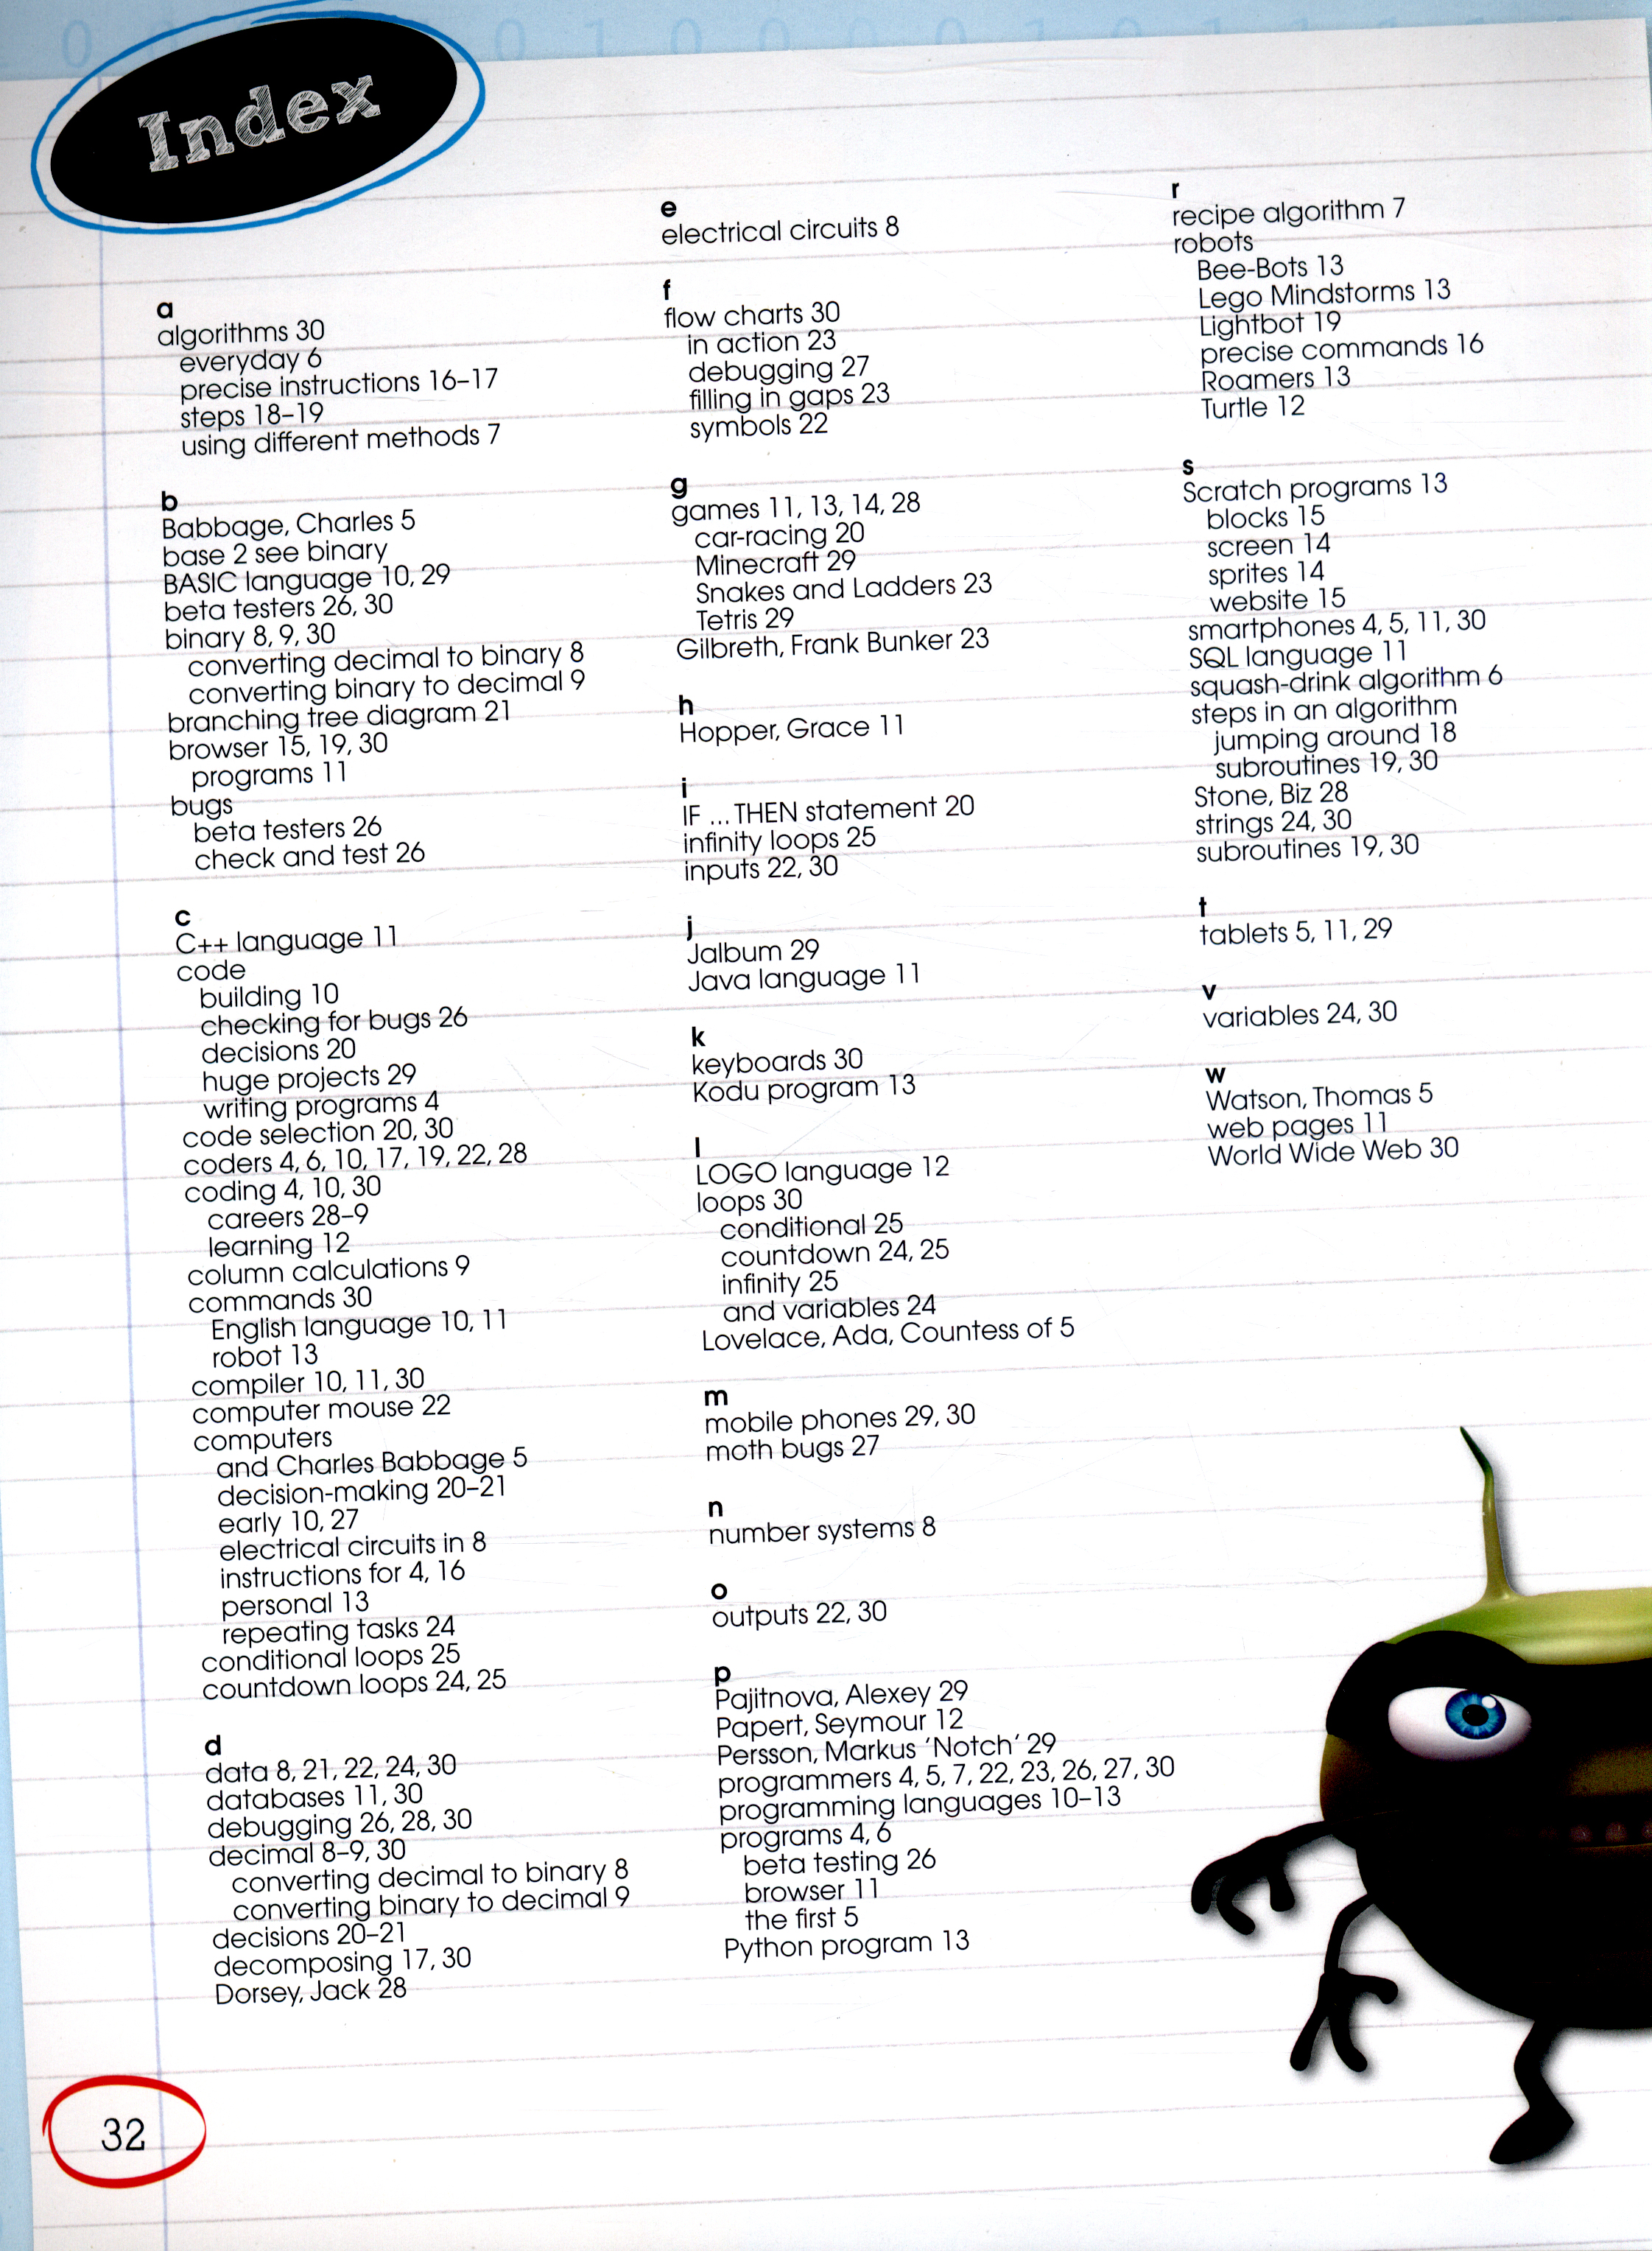 Index
a
algorithms 30
everyday 6
precise instructions 16–17
steps 18–19
using different methods 7
b
Babbage, Charles 5
base 2 see binary
BASIC language 10, 29
beta testers 26, 30
binary 8, 9, 30
converting decimal to binary 8
converting binary to decimal 9
branching tree diagram 21
browser 15, 19, 30
programs 11
bugs
beta testers 26
check and test 26
c
C++ language 11
code
building 10
checking for bugs 26
decisions 20
huge projects 29
writing programs 4
code selection 20, 30
coders 4, 6, 10, 17, 19, 22, 28
coding 4, 10, 30
careers 28–9
learning 12
column calculations 9
commands 30
English language 10, 11
robot 13
compiler 10, 11, 30
computer mouse 22
computers
and Charles Babbage 5
decision-making 20–21
early 10, 27
electrical circuits in 8
instructions for 4, 16
personal 13
repeating tasks 24
conditional loops 25
countdown loops 24, 25
d
data 8, 21, 22, 24, 30
databases 11, 30
debugging 26, 28, 30
decimal 8–9, 30
converting decimal to binary 8
converting binary to decimal 9
decisions 20–21
decomposing 17, 30
Dorsey, Jack 28
e
electrical circuits 8
f
flow charts 30
in action 23
debugging 27
filling in gaps 23
symbols 22
g
games 11, 13, 14, 28
car-racing 20
Minecraft 29
Snakes and Ladders 23
Tetris 29
Gilbreth, Frank Bunker 23
h
Hopper, Grace 11
i
IF ... THEN statement 20
infinity loops 25
inputs 22, 30
j
Jalbum 29
Java language 11
k
keyboards 30
Kodu program 13
l
LOGO language 12
loops 30
conditional 25
countdown 24, 25
infinity 25
and variables 24
Lovelace, Ada, Countess of 5
m
mobile phones 29, 30
moth bugs 27
n
number systems 8
o
outputs 22, 30
p
Pajitnova, Alexey 29
Papert, Seymour 12
Persson, Markus ‘Notch’ 29
programmers 4, 5, 7, 22, 23, 26, 27, 30
programming languages 10–13
programs 4, 6
beta testing 26
browser 11
the first 5
Python program 13
r
recipe algorithm 7
robots
Bee-Bots 13
Lego Mindstorms 13
Lightbot 19
precise commands 16
Roamers 13
Turtle 12
s
Scratch programs 13
blocks 15
screen 14
sprites 14
website 15
smartphones 4, 5, 11, 30
SQL language 11
squash-drink algorithm 6
steps in an algorithm
jumping around 18
subroutines 19, 30
Stone, Biz 28
strings 24, 30
subroutines 19, 30
t
tablets 5, 11, 29
v
variables 24, 30
w
Watson, Thomas 5
web pages 11
World Wide Web 30
32